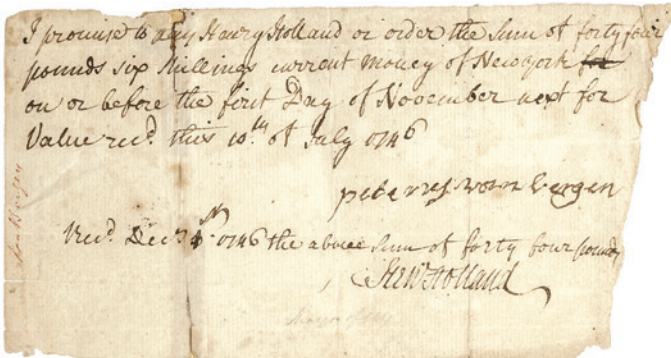 I promise to pay Henry Holland or order the Sum of forty four
pounds six Shillings current money of Newyork for
on or before the first Day of November next for
Value recd. this 10th of July 1746
peterus van bergen
Recd. Decr. 1746 the above Sum of forty four pounds
Hen Holland